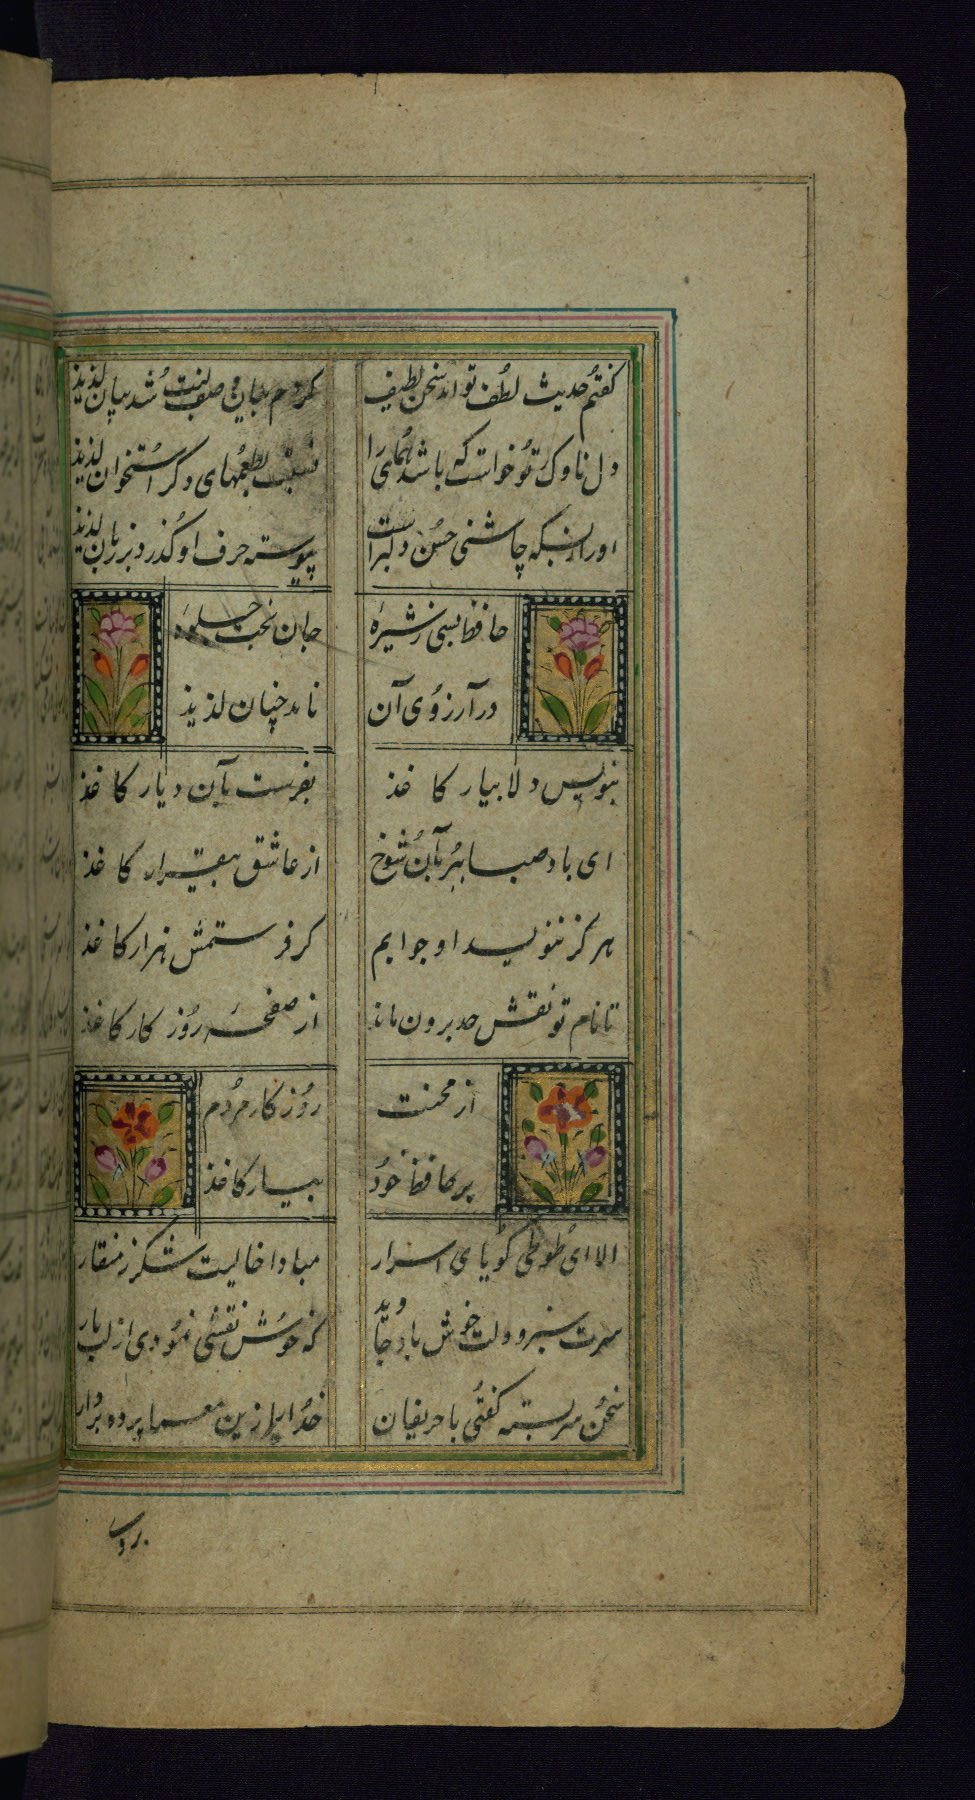 کفتم حدیث لطف تو اند سخن لطیف کردم بیان وصف لبت شد بیان لذیذ
دل ناوک تو خواست که باشد همای را نسبت بطعمهای دکر استخوان لذیذ
او را زبسکه چاشنی حسن دلبراست پیوسته حرف او کذرد بر زبان لذیذ
حافظ بسی ز شیره جان نخب جلوه
در آرزوی آن ناید چنان لذیذ
بنویس دلا بیار کاغذ بفرست بآن دیار کاغذ
ای باد صبا ببر بآن شوخ از عاشق بیقرار کاغذ
هرکز ننویسد او جوابم کر فرستمش هزار کاغذ
تا نام تو نقش حد برون ماند از صفحه روز کار کاغذ
از محنت روزکار مردم
بر حافظ خود بسیار کاغذ
الا ای طوطی کویای اسرار مبادا خالیت شکر ز منقار
سرت سبز و دلت خوش باد جاوید که خوش نقشی نمودی از لب یار
سخن سربسته کفتی با حریفان خدا را زین معما پرده بردار